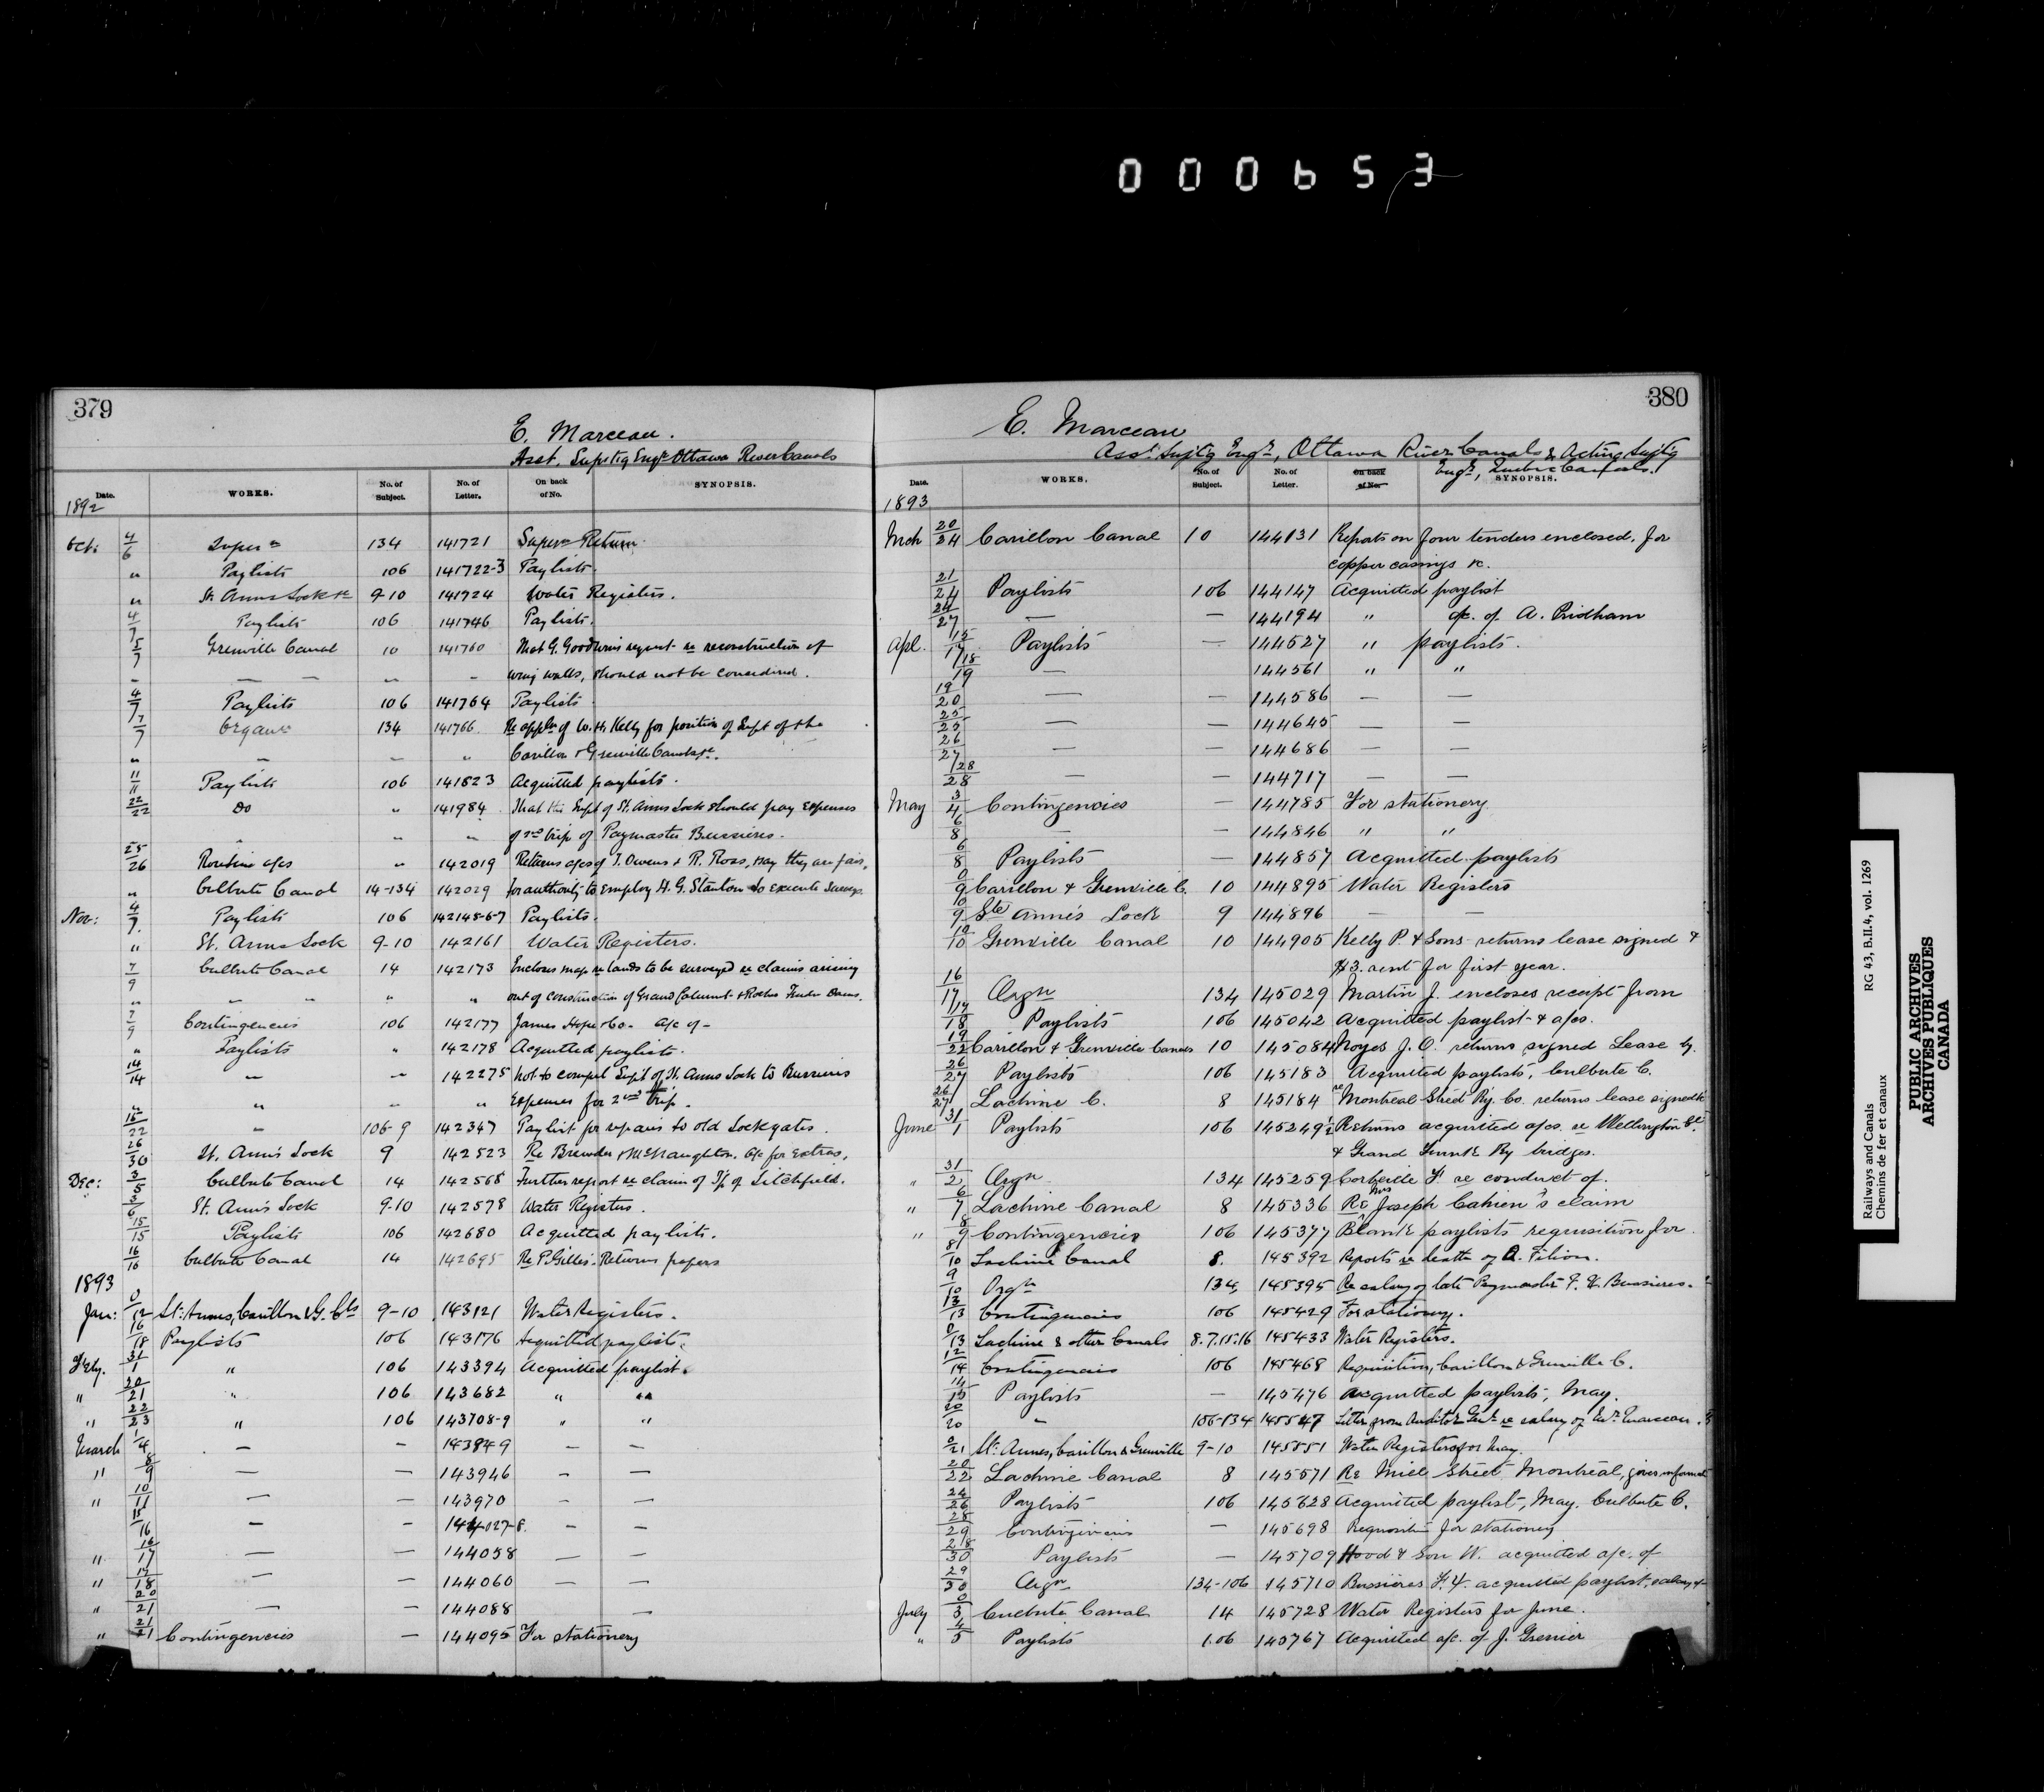 000653
379
E. Marceau.
Asst. Suptg Engr Ottawa River Canals
Date. WORKS. No. of Subject. No. of Letter. On back of No. SYNOPSIS.
1892
Oct. 4/6 Super 134 141721 Super Return.
" Paylists 106 141722-3 Paylists.
" St. Anns Lock &c 9-10 141724 Water Registers.
4/7 Paylists 106 141746 Paylists.
5/7 Grenville Canal 10 141760 That G. Goodwins request re reconstruction of
" — — " " wing walls, should not be considered.
4/7 Paylists 106 141764 Paylists
7/7 Organ 134 141766 Re appln of W. H. Kelly for position of Supt of the
" " " " Carillon & Grenville Canals &c.
11/11 Paylists 106 141823 Acquitted paylists.
22/22 Do " 141984 That the Supt of St. Anns Lock should pay expenses
" " " of 2nd trip of Paymaster Bussieres.
25/26 Routine a/cs " 142019 Returns a/cs of T. Owens & R. Ross, say they are fair.
" Culbute Canal 14-134 142029 for authority to employ H. G. Stanton to execute surveys.
Nov: 4/7 Paylists 106 142148-6-7 Paylists.
" St. Anns Lock 9-10 142161 Water Registers.
7/9 Culbute Canal 14 142173 Encloses map re lands to be surveyed re claims arising
" " " " " out of construction of Grand Calumet & Roches Fendu Dams.
7/9 Contingencies 106 142177 James Hope & Co. a/c of -
" Paylists " 142178 Acquitted paylists.
14/14 " " 142275 not to compel Supt of St. Anns Lock to Bussieres
" " " " Expenses for 2nd trip.
15/22 " 106-9 142347 Paylist for repairs to old Lock gates.
26/30 St. Ann's Lock 9 142523 Re Brewder & McNaughton. a/c for extras.
Dec: 3/5 Culbute Canal 14 142568 Further report re claim of T/p of Litchfield.
3/6 St. Ann's Lock 9-10 142578 Water Registers.
15/15 Paylists 106 142680 Acquitted paylists.
16/16 Culbute Canal 14 142695 Re P. Gillies. Returns papers
1893
Jan: 0/12 St. Annes, Carillon & G. Cls 9-10 143121 Water Registers.
16/18 Paylists 106 143176 Acquitted paylists.
Feby. 31/1 " 106 143394 Acquitted paylist.
" 20/21 " 106 143682 " "
" 22/23 " 106 143708-9 " "
March 1/4 — — 143849 — —
" 8/9 — — 143946 — —
" 10/11 — — 143970 — —
15/16 — — 144027-8. — —
" 16/17 — — 144058 — —
" 17/18 — — 144060 — —
" 20/21 — — 144088 —
" 21/21 Contingencies — 144095 For stationery
380
E. Marceau
Asst Suptg Engr, Ottawa River Canals & Acting Suptg
Engr, Quebec Canals.
Date. WORKS. No. of Subject. No. of Letter. On back of No. SYNOPSIS.
1893
Mch 20/24 Carillon Canal 10 144131 Reports on four tenders enclosed, for
copper casings &c.
21/24 Paylists 106 144147 Acquitted paylist
24/27 — — 144194 " a/c. of A. Pridham
Apl. 15/17 Paylists — 144527 " paylists.
18/19 — 144561 " "
19/20 — — 144586 — —
25/25 — — 144645 — —
26/27 — — 144686 — —
28/28 — — 144717 — —
May 3/4 Contingencies — 144785 For stationery
6/8 — — 144846 " "
6/8 Paylists — 144857 Acquitted paylists
0/9 Carillon & Grenville C. 10 144895 Water Registers
10/9 Ste Anne's Lock 9 144896 — —
10/10 Grenville Canal 10 144905 Kelly P. & Sons returns lease signed &
$3. rent for first year.
16/17 Orgn 134 145029 Martin J. encloses receipt from
17/18 Paylists 106 145042 Acquitted paylist & a/cs.
19/22 Carillon & Grenville Canals 10 145084 Noyes J. O. returns signed Lease by.
26/27 Paylists 106 145183 Acquitted paylists, Culbute C.
26/27 Lachine C. 8 145184 re Montreal Street Ry. Co. returns lease signed
June 31/1 Paylists 106 145249½ Returns acquitted a/cs. re Wellington St.
& Grand Trunk Ry bridges.
" 31/2 Orgn 134 145259 F. re conduct of.
" 6/7 Lachine Canal 8 145336 Re Mrs Joseph Cahien's claim
" 8/9 Contingencies 106 145377 Blank paylists requisition for.
8/10 Lachine Canal 8. 145392 Reports re death of A. Filion.
9/10 Orgn 134 145395 Re salary of late Paymaster F. X. Bussieres.
13/13 Contingencies 106 145429 For stationery.
0/13 Lachine & other Canals 8.7.15.16 145433 Water Registers.
12/14 Contingencies 106 145468 Requisition, Carillon & Grenville C.
14/15 Paylists — 145476 Acquitted paylists, May.
20/20 " 106-134 145547 Letter from Auditor Genl. re salary of Mr. Marceau.
0/21 St. Annes, Carillon & Grenville 9-10 145551 Water Registers for May.
20/22 Lachine Canal 8 145571 Re Mill Street Montreal, gives informat
24/26 Paylists 106 145628 Acquitted paylist, May. Culbute C.
28/29 Contingencies — 145698 Requisition for stationery
28/30 Paylists — 145709 Hood & Son W. acquitted a/c. of
29/30 Orgn 134-106 145710 Bussières F. X. acquitted paylist, salary of
July 0/3 Culbute Canal 14 145728 Water Registers for June.
" 4/5 Paylists 106 145767 Acquitted a/c. of J. Grenier
Railways and Canals RG 43, B.II.4, vol. 1269
Chemins de fer et canaux
PUBLIC ARCHIVES
ARCHIVES PUBLIQUES
CANADA